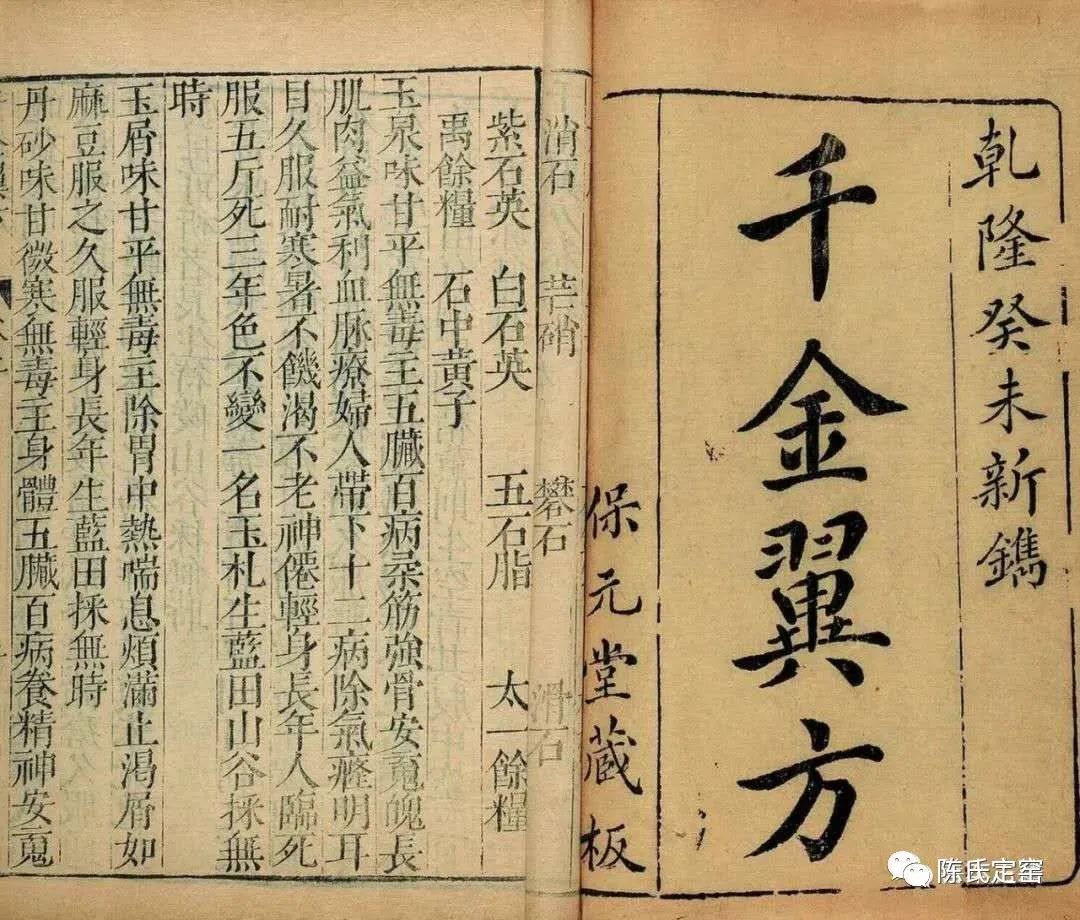 乾隆癸未新鐫
千金翼方
保元堂藏板
消石　芒硝　礬石　滑石
紫石英　白石英　五石脂　太一餘糧
禹餘糧　石中黃子
玉泉味甘平無毒主五臟百病柔筋強骨安䰟魄長
肌肉益氣利血脉療婦人帶下十二病除氣癃明耳
目久服耐寒暑不饑渴不老神僊輕身長年人臨死
服五斤死三年色不變一名玉札生藍田山谷採無
時
玉屑味甘平無毒主除胃中熱喘息煩滿止渴屑如
麻豆服之久服輕身長年生藍田採無時
丹砂味甘微寒無毒主身體五臟百病養精神安䰟
陈氏定窑